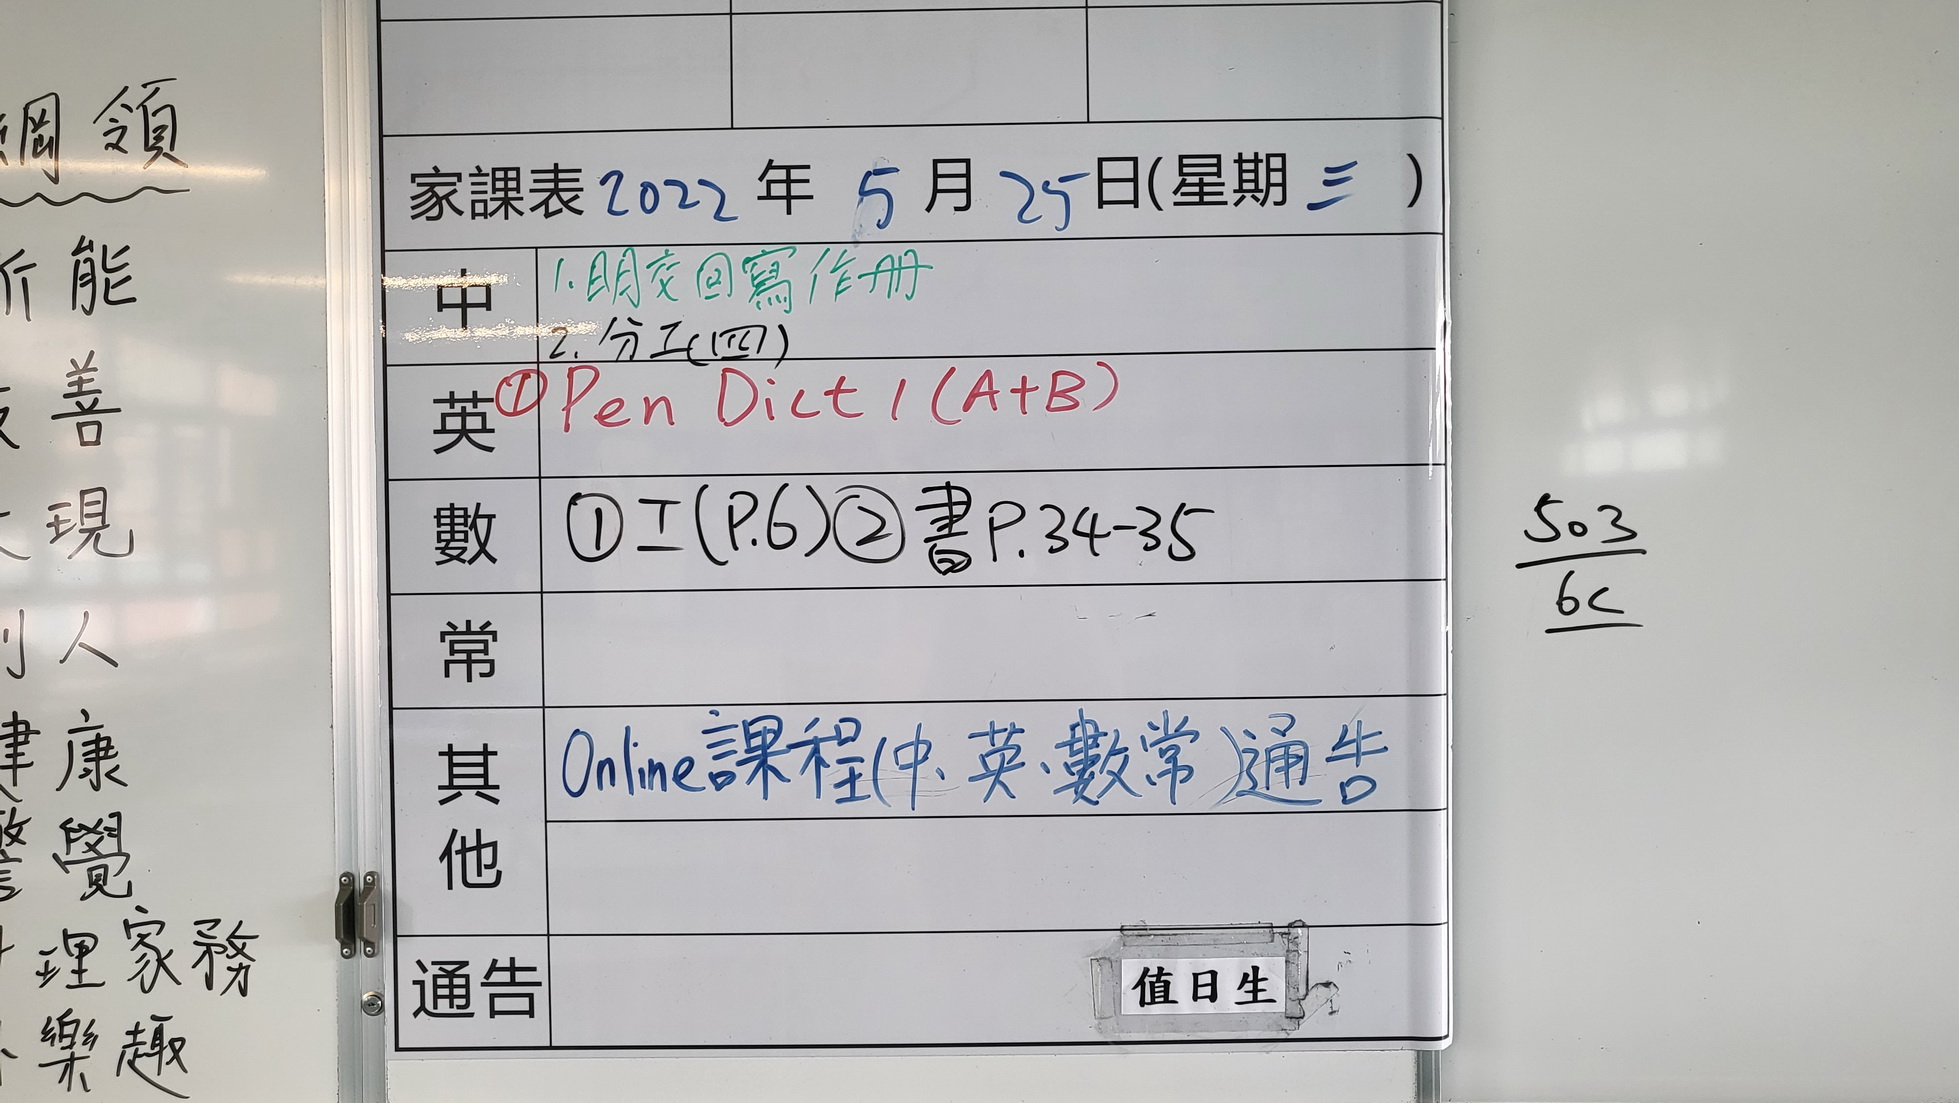 綱領
能
善
現
人
康
覺
理家務
樂趣
家課表2022年5月25日(星期三)
中
1.明交回寫作册
2.分工(四)
英
①Pen Dict 1 (A+B)
數
①工(P.6)②書P.34-35
常
其他
Online課程(中、英、數常)通告
通告
值日生
503
6C